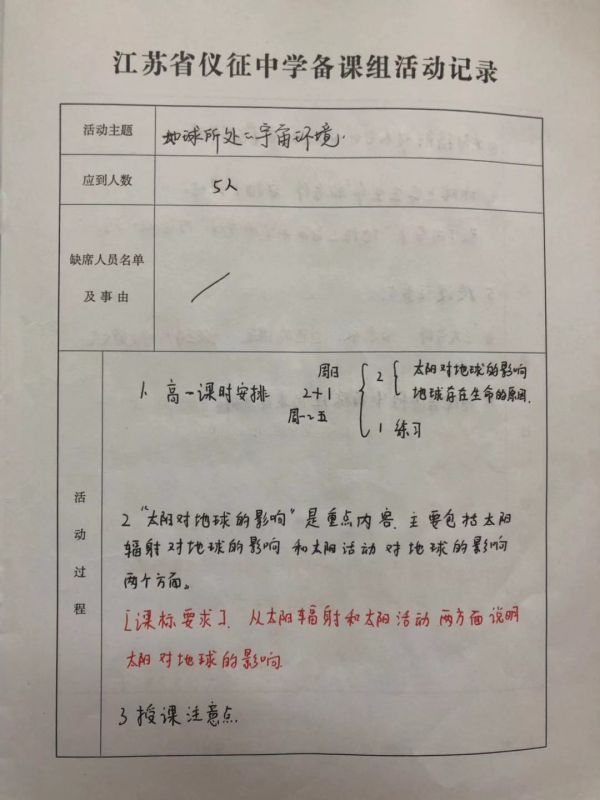 江苏省仪征中学备课组活动记录
活动主题
地球所处的宇宙环境.
应到人数
5人
缺席人员名单
及事由
/
活动过程
1. 高一课时安排
周日
2+1
周一~五
2
太阳对地球的影响
地球存在生命的原因.
1 练习
2 “太阳对地球的影响”是重点内容. 主要包括太阳
辐射对地球的影响和太阳活动对地球的影响
两个方面。
[课标要求]. 从太阳辐射和太阳活动两方面说明
太阳对地球的影响.
3 授课注意点.